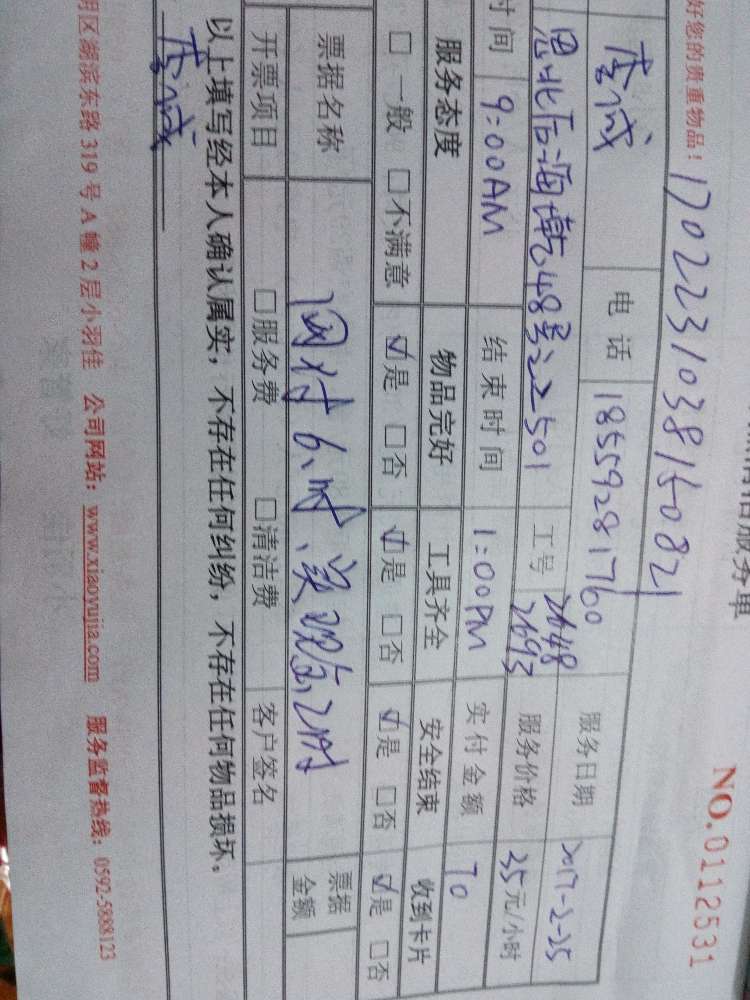 清洁服务单
NO.0112531
好您的贵重物品！ 1702231038150821
李诚 电话 18559281760 服务日期 2017-2-25
48号22501 工号 2648 2693 服务价格 35元/小时
时间 9:00AM 结束时间 1:00PM 实付金额 70
服务态度 物品完好 工具齐全 安全结束 收到卡片
□一般 □不满意 ☑是 □否 ☑是 □否 ☑是 □否 ☑是 □否
票据名称 网付6小时、 2小时 票据金额
开票项目 □服务费 □清洁费 客户签名
以上填写经本人确认属实，不存在任何纠纷，不存在任何物品损坏。
李诚
明区湖滨东路319号A幢2层小羽佳 公司网站：www.xiaoyujia.com 服务监督热线：0592-5888123